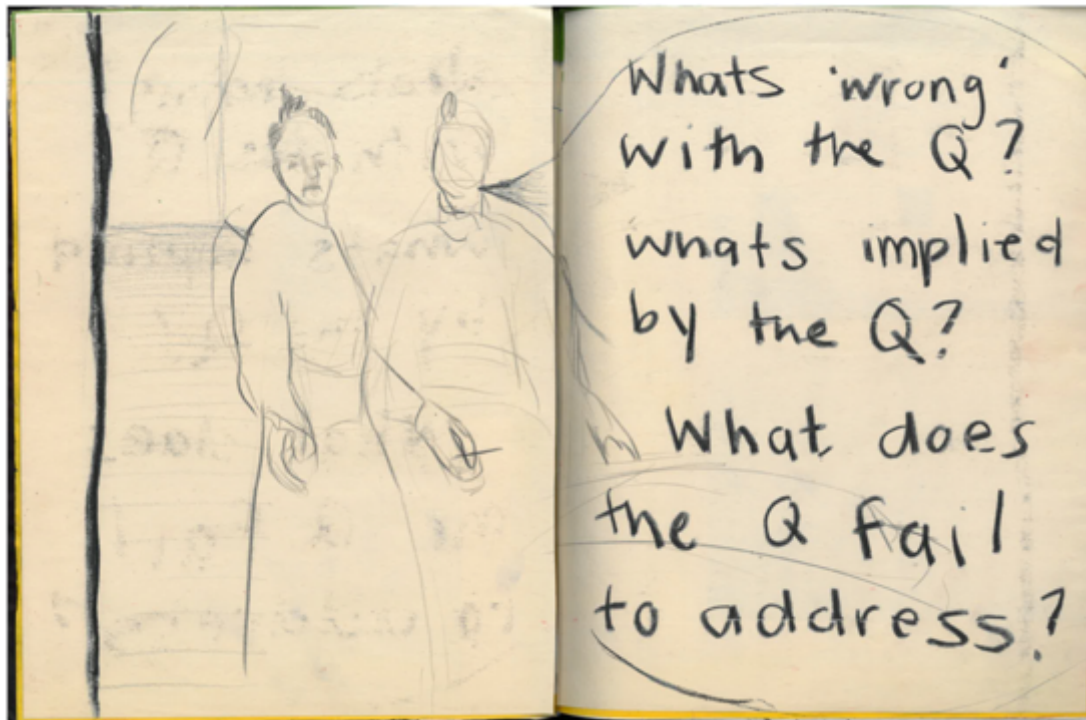 Whats 'wrong'
with the Q?
whats implied
by the Q?
What does
the Q fail
to address?